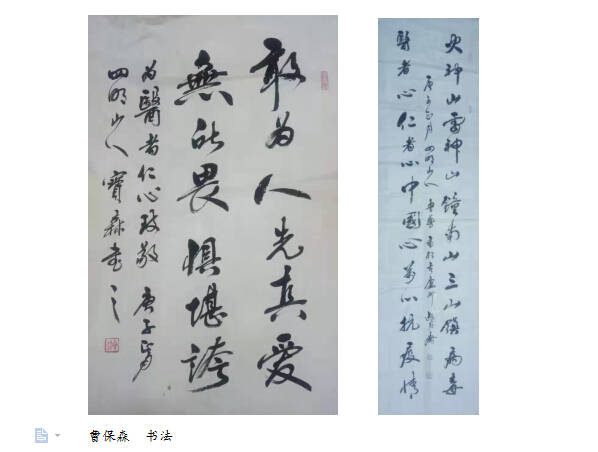 敢为人先真愛
無所畏惧堪誇
为醫者仁心致敬 庚子正月
四明山人寶森書之
火神山雷神山鐘南山三山鎮病毒
醫者心仁者心中國心萬心抗疫情
庚子正月四明山人
曹保森 书法